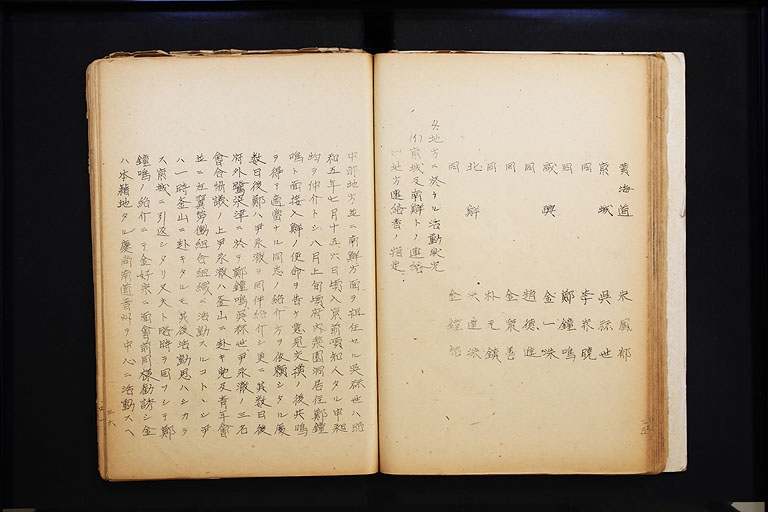 黄海道 宋鳳郁
京城 呉琮世
同 李衆暁
同 鄭鐘鳴
咸興 金一洙
同 趙徳進
同 金衆善
同 朴元鎮
北鮮 洪達洙
同 金鎧
各地方ニ於ケル活動状況
(イ)京城及南鮮トノ連絡
(一)地方連絡者ノ指定
中部地方並ニ南鮮方面ヲ担任セル呉琮世ハ昭
和五年七月十五六日頃入京前頃知人タル申
均ヲ仲介トシ八月上旬頃府内衆園洞居住鄭鐘
鳴ト面接入鮮ノ使命ヲ告ケ意見交換ノ後共鳴
ヲ得テ適当ナル同志ノ紹介方ヲ依頼シタル處
数日後鄭ハ尹永澈ヲ同伴紹介シ更ニ其数日後
府外鷺梁津ニ於テ鄭鐘鳴呉琮世尹永澈ノ三名
會合協議ノ上尹永澈ハ釜山ニ赴キ東友青年會
並ニ左翼労働組合組織ニ活動スルコトトシ尹
ハ一時釜山ニ赴キタルモ其後活動思ハシカラ
ス京城ニ引返シタリ又夫ト略時ヲ同フシテ鄭
鐘鳴ノ紹介ニテ金好衆ニ面會前同様勧誘シ金
ハ本籍地タル慶尚南道晋州ヲ中心ニ活動スヘ